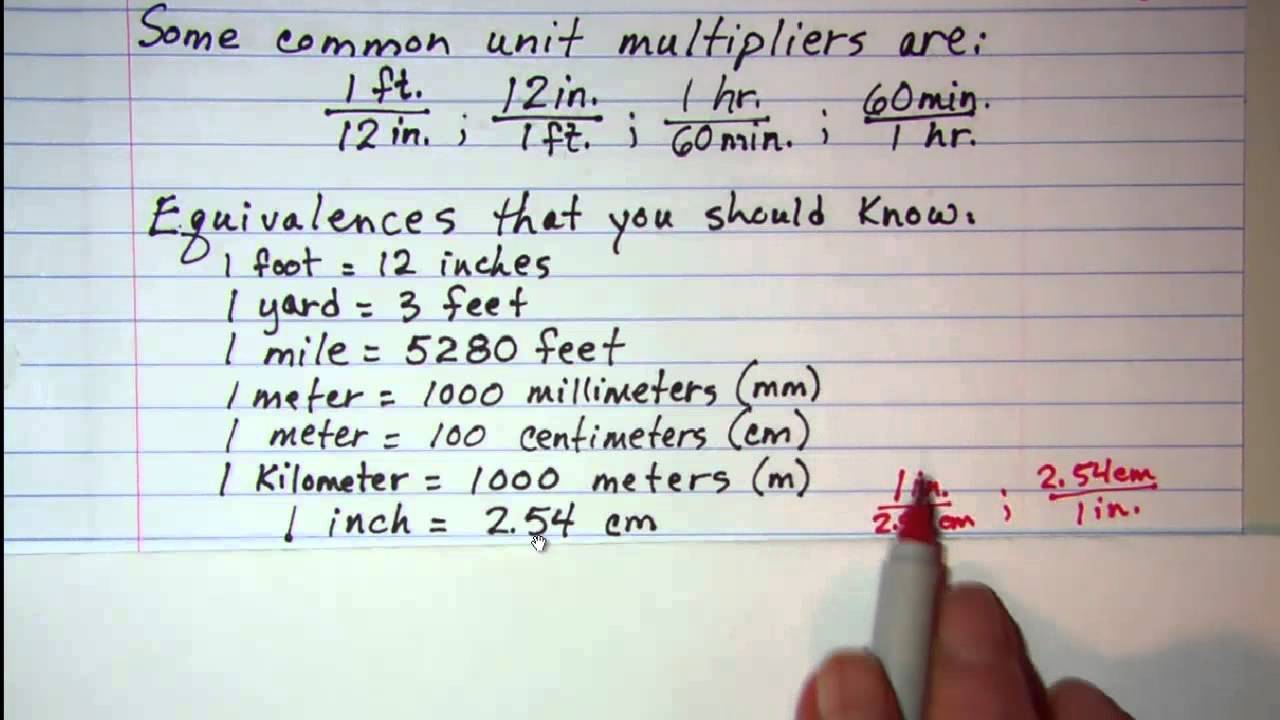 Some common unit multipliers are:
1 ft. / 12 in. ; 12 in. / 1 ft. ; 1 hr. / 60 min. ; 60 min. / 1 hr.
Equivalences that you should know:
1 foot = 12 inches
1 yard = 3 feet
1 mile = 5280 feet
1 meter = 1000 millimeters (mm)
1 meter = 100 centimeters (cm)
1 Kilometer = 1000 meters (m)
1 inch = 2.54 cm
1 in. / cm ; 2.54 cm / 1 in.